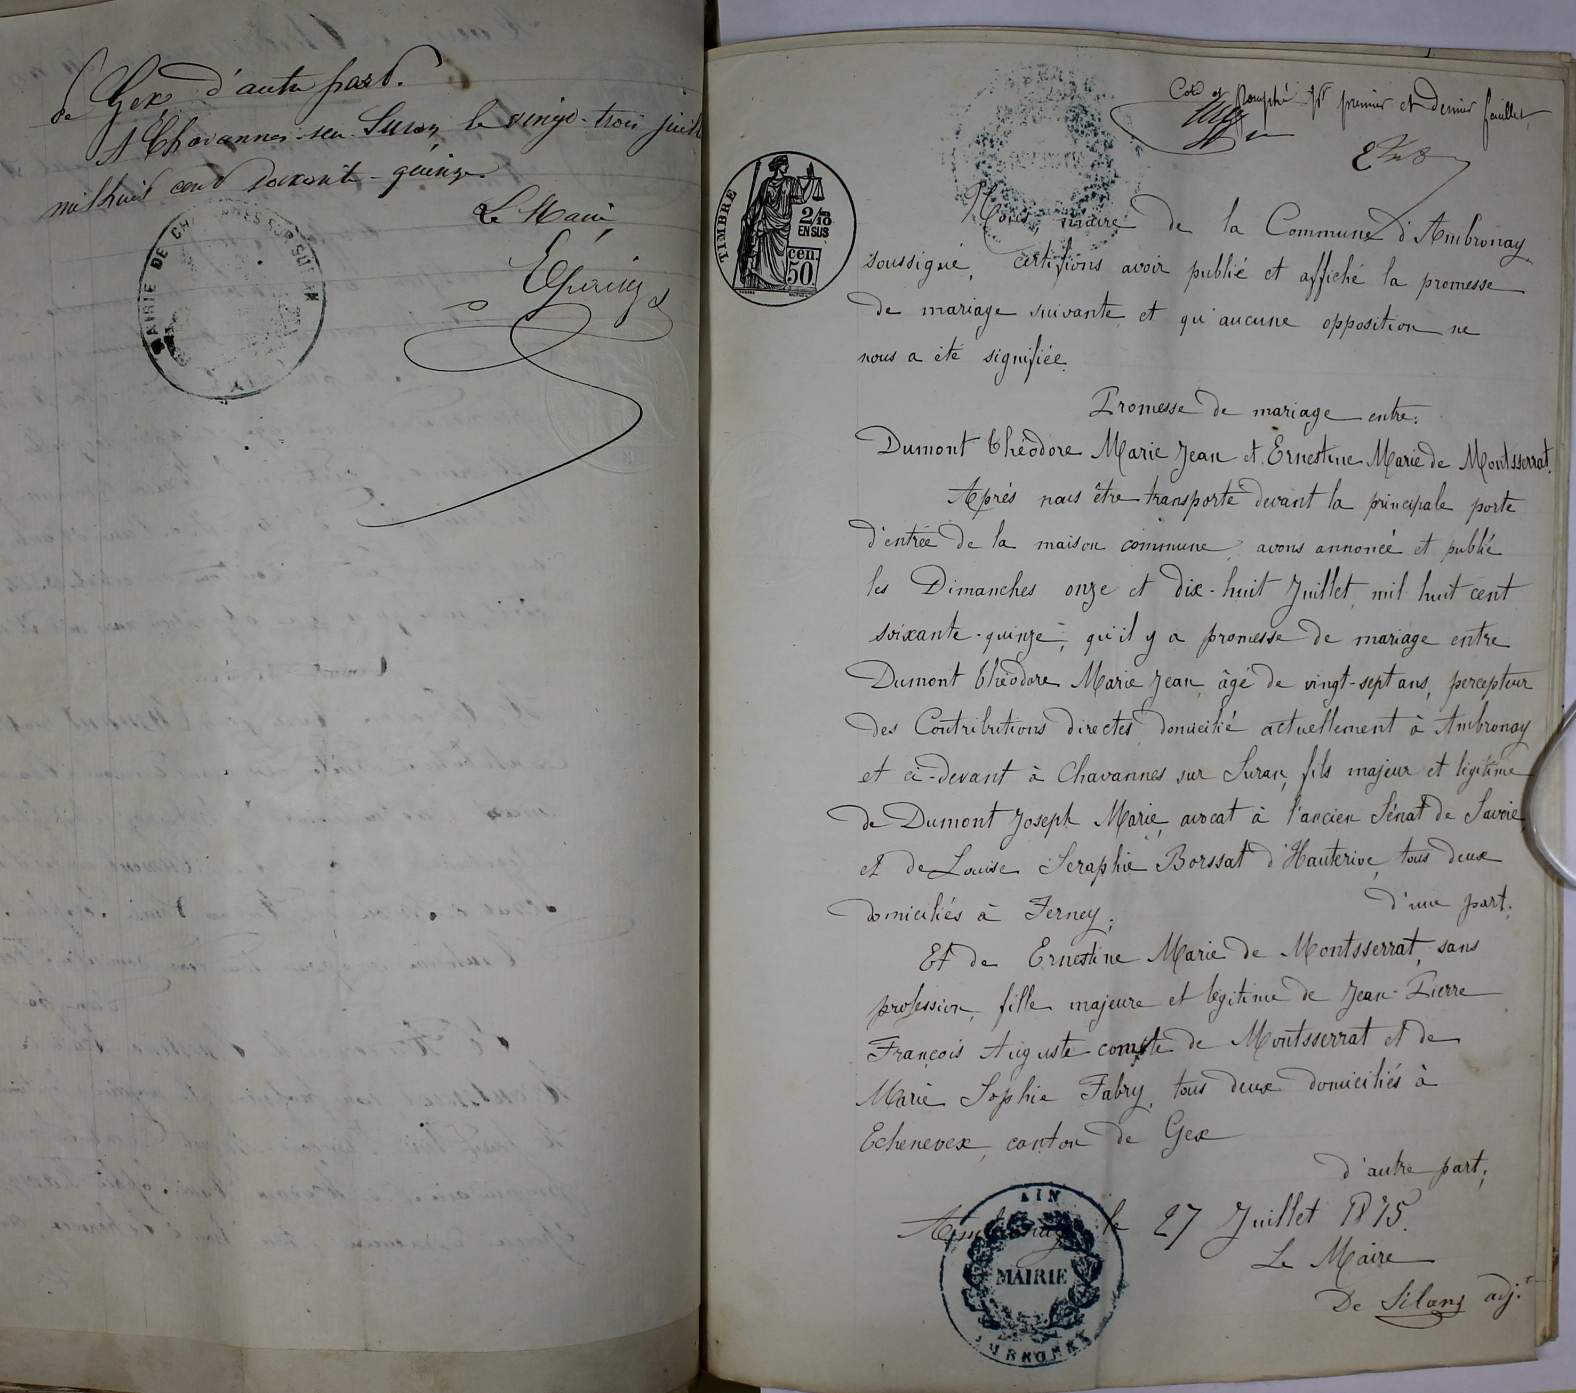 de Gex d'autre part.
A Chavannes-sur-Suran le vingt-trois juillet
mil huit cent soixante-quinze.
Le Maire,
MAIRIE DE CHAVANNES SUR SURAN
Coté et paraphé pr premier et dernier feuillet
TIMBRE
2/10
EN SUS
50 cen.
Nous, maire de la Commune d'Ambronay
soussigné, certifions avoir publié et affiché la promesse
de mariage suivante et qu'aucune opposition ne
nous a été signifiée.
Promesse de mariage entre:
Dumont Théodore Marie Jean et Ernestine Marie de Montsserrat.
Après nous être transporté devant la principale porte
d'entrée de la maison commune, avons annoncé et publié
les Dimanches onze et dix-huit Juillet mil huit cent
soixante-quinze, qu'il y a promesse de mariage entre
Dumont Théodore Marie Jean, âgé de vingt-sept ans, percepteur
des Contributions directes domicilié actuellement à Ambronay
et ci-devant à Chavannes sur Suran, fils majeur et légitime
de Dumont Joseph Marie, avocat à l'ancien Sénat de Savoie
et de Louise Seraphie Borssat d'Hauterive, tous deux
domiciliés à Ferney;
d'une part;
Et de Ernestine Marie de Montsserrat, sans
profession, fille majeure et légitime de Jean-Pierre
François Auguste comte de Montsserrat et de
Marie Sophie Fabry, tous deux domiciliés à
Echenevex, canton de Gex
d'autre part;
Ambronay le 27 Juillet 1875.
Le Maire
De Silans adj.t
AIN
MAIRIE
AMBRONAY